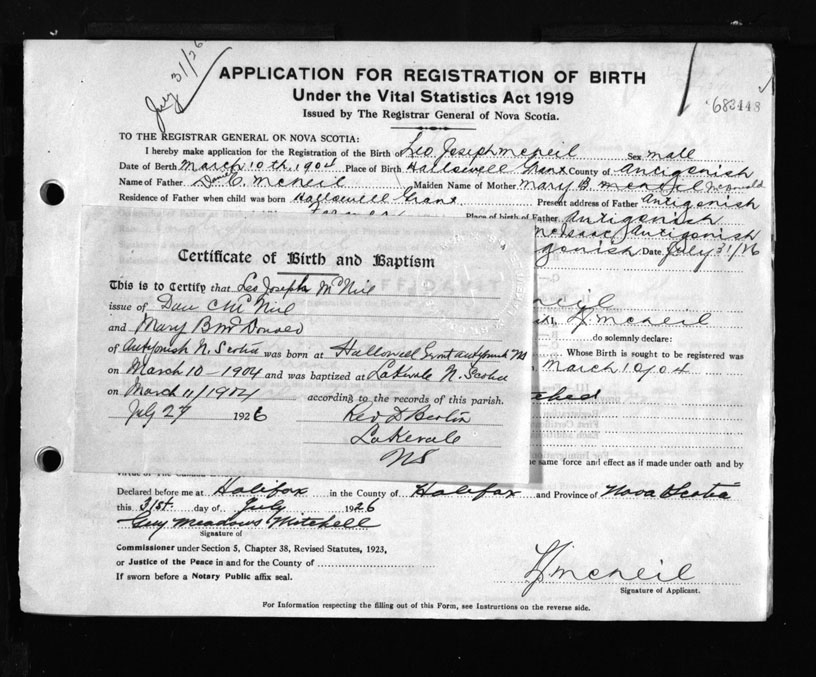 July 31/26
APPLICATION FOR REGISTRATION OF BIRTH
Under the Vital Statistics Act 1919
Issued by The Registrar General of Nova Scotia.
TO THE REGISTRAR GENERAL OF NOVA SCOTIA:
I hereby make application for the Registration of the Birth Leo Joseph McNeil Sex male
Date of Birth March 10th, 1904 Place of Birth Hallowell Grant County of Antigonish
Name of Father C. McNeil Maiden Name of Mother Mary B.
Residence of Father when child was born Hallowell Grant Present address of Father Antigonish
Farmer Place of birth of Father Antigonish
McIsaac, Antigonish
gonish Date July 31/26
Certificate of Birth and Baptism
This is to Certify that Leo Joseph McNeil
issue of Dan C McNeil
and Mary B McDonald
of Antigonish N. Scotia was born at Hallowell Grant Antigonish NS
on March 10 - 1904 and was baptized at Lakevale N. Scotia
on March 11/1904 according to the records of this parish.
July 27 1926 Rev D Beaton
Lakevale
NS
neil
McNeil
do solemnly declare:
Whose Birth is sought to be registered was
March 10, 04
ched
he same force and effect as if made under oath and by
Declared before me at Halifax in the County of Halifax and Province of Nova Scotia
this 31st. day of July 1926
Guy Meadows Mitchell
Signature of
Commissioner under Section 5, Chapter 38, Revised Statutes, 1923,
or Justice of the Peace in and for the County of
If sworn before a Notary Public affix seal.
LJ McNeil
Signature of Applicant.
For Information respecting the filling out of this Form, see Instructions on the reverse side.